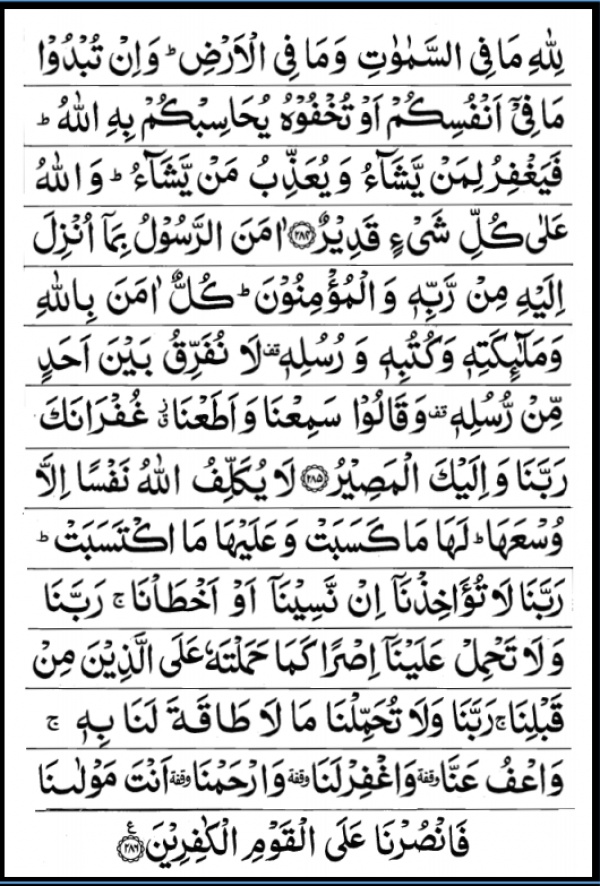 لِلّٰهِ مَا فِى السَّمٰوٰتِ وَمَا فِى الْاَرْضِ ؕ وَاِنْ تُبْدُوْا
مَا فِىْۤ اَنْفُسِكُمْ اَوْ تُخْفُوْهُ يُحَاسِبْكُمْ بِهِ اللّٰهُ ؕ
فَيَغْفِرُ لِمَنْ يَّشَآءُ وَ يُعَذِّبُ مَنْ يَّشَآءُ ؕ وَ اللّٰهُ
عَلٰى كُلِّ شَىْءٍ قَدِيْرٌ ﴿۲۸۴﴾ اٰمَنَ الرَّسُوْلُ بِمَاۤ اُنْزِلَ
اِلَيْهِ مِنْ رَّبِّهٖ وَ الْمُؤْمِنُوْنَ ؕ كُلٌّ اٰمَنَ بِاللّٰهِ
وَمَلٰٓئِكَتِهٖ وَكُتُبِهٖ وَ رُسُلِهٖ قف لَا نُفَرِّقُ بَيْنَ اَحَدٍ
مِّنْ رُّسُلِهٖ قف وَقَالُوْا سَمِعْنَا وَاَطَعْنَا ق غُفْرَانَكَ
رَبَّنَا وَاِلَيْكَ الْمَصِيْرُ ﴿۲۸۵﴾ لَا يُكَلِّفُ اللّٰهُ نَفْسًا اِلَّا
وُسْعَهَا ؕ لَهَا مَا كَسَبَتْ وَعَلَيْهَا مَا اكْتَسَبَتْ ؕ
رَبَّنَا لَا تُؤَاخِذْنَاۤ اِنْ نَّسِيْنَاۤ اَوْ اَخْطَاْنَا ۚ رَبَّنَا
وَلَا تَحْمِلْ عَلَيْنَاۤ اِصْرًا كَمَا حَمَلْتَهٗ عَلَى الَّذِيْنَ مِنْ
قَبْلِنَا ۚ رَبَّنَا وَلَا تُحَمِّلْنَا مَا لَا طَاقَةَ لَنَا بِهٖ ۚ
وَاعْفُ عَنَّا وقفة وَاغْفِرْ لَنَا وقفة وَارْحَمْنَا وقفة اَنْتَ مَوْلٰىنَا
فَانْصُرْنَا عَلَى الْقَوْمِ الْكٰفِرِيْنَ ﴿۲۸۶﴾ ع